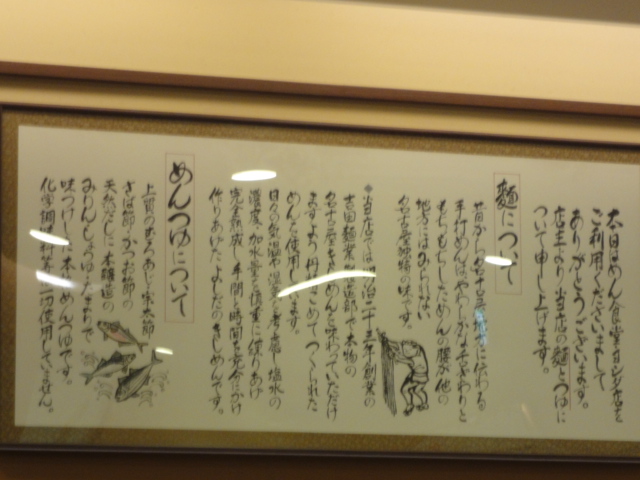 本日はめん食堂
ご利用くださいまして
ありがとうございます。
店主より当店の麺とつゆに
ついて申し上げます。
麺について
昔から名古屋地方に伝わる
手打めんはやわらかなそざわりと
もちもちしためんの腰が他の
地方にはみられない
名古屋独特の味です。
当店では明治二十三年創業の
吉田麺業の製造部で本物の
名古屋きしめんを味わっていただけ
ますよう丹精こめてつくられた
めんを使用しています。
日々の気温や湿度を考慮し塩水の
濃度、加水量を慎重に練りあげ
完全熟成し手間と時間を充分にかけ
作りあげたよしだのきしめんです。
めんつゆについて
上質のむろあじと宗太節
さば節、かつお節の
天然だしに本醸造の
みりん、しょうゆ、たまりで
味つけした本物のめんつゆです。
化学調味料等は一切使用していません。